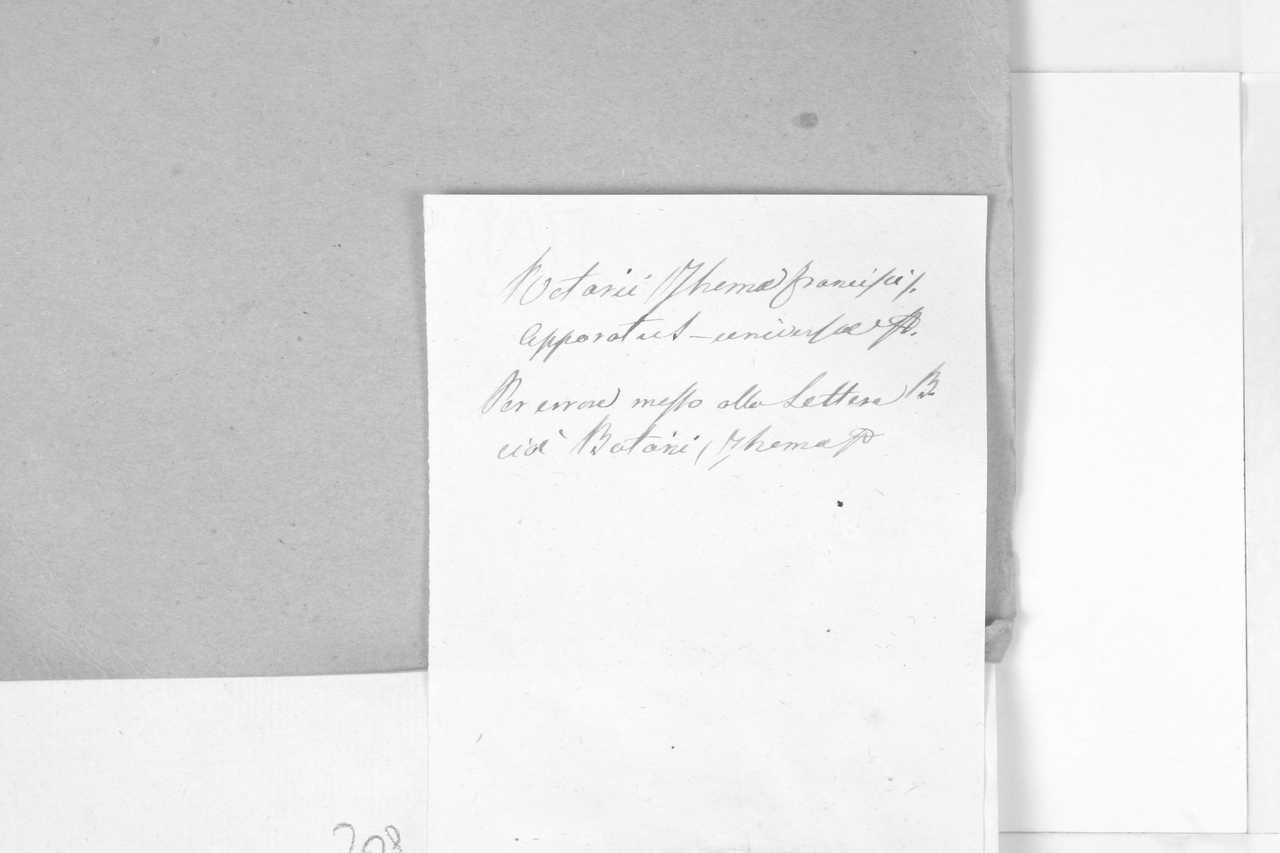 Rotarii (Thomæ Francisci).
Apparatus – universæ &.
Per errore messo alla Lettera B
cioè Botarii (Thomæ &
208